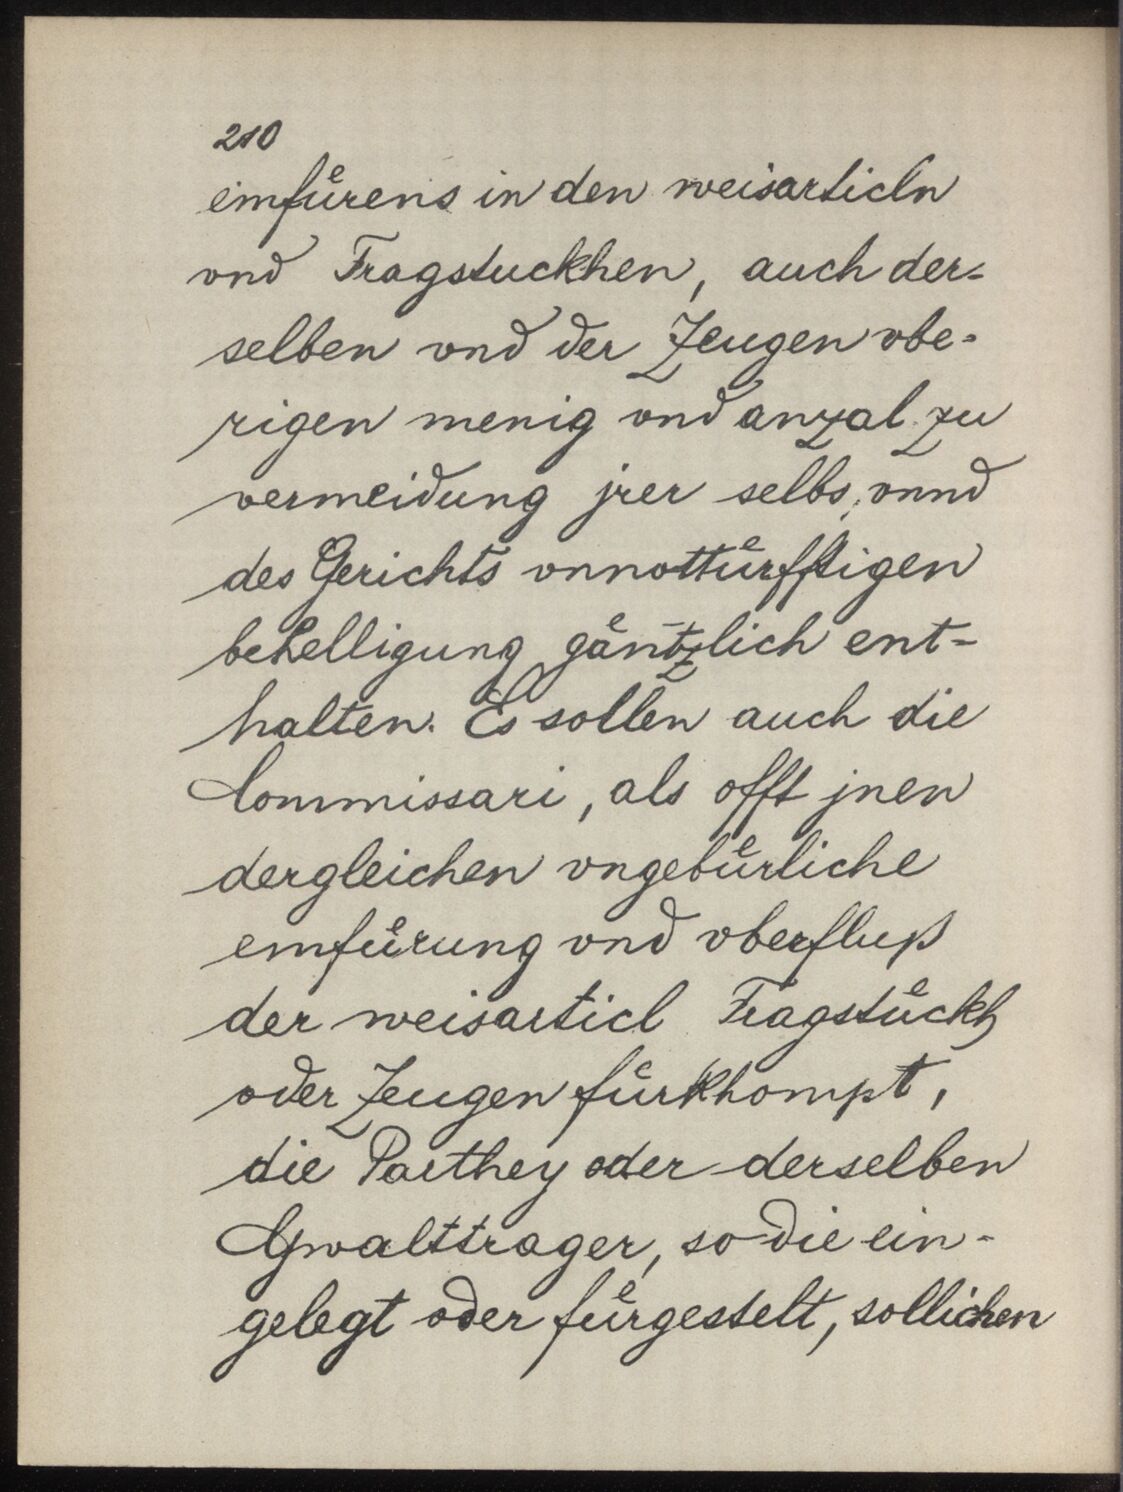 210
einfuͤrens in den weisarticln
vnd Fragstuckhen, auch der-
selben vnd der Zeugen vbe-
rigen menig vnd anzal zu
vermeidung jrer selbs, vnnd
des Gerichts vnnottuͤrfftigen
behelligung gaͤntzlich ent-
halten. Es sollen auch die
Commissari, als offt jnen
dergleichen vngebuͤrliche
einfuͤrung vnd vberfluß
der weisarticl Fragstuͤckh
oder Zeugen fuͤrkhompt,
die Parthey oder derselben
Gwalttrager, so die ein-
gelegt oder fuͤrgestelt, sollichen